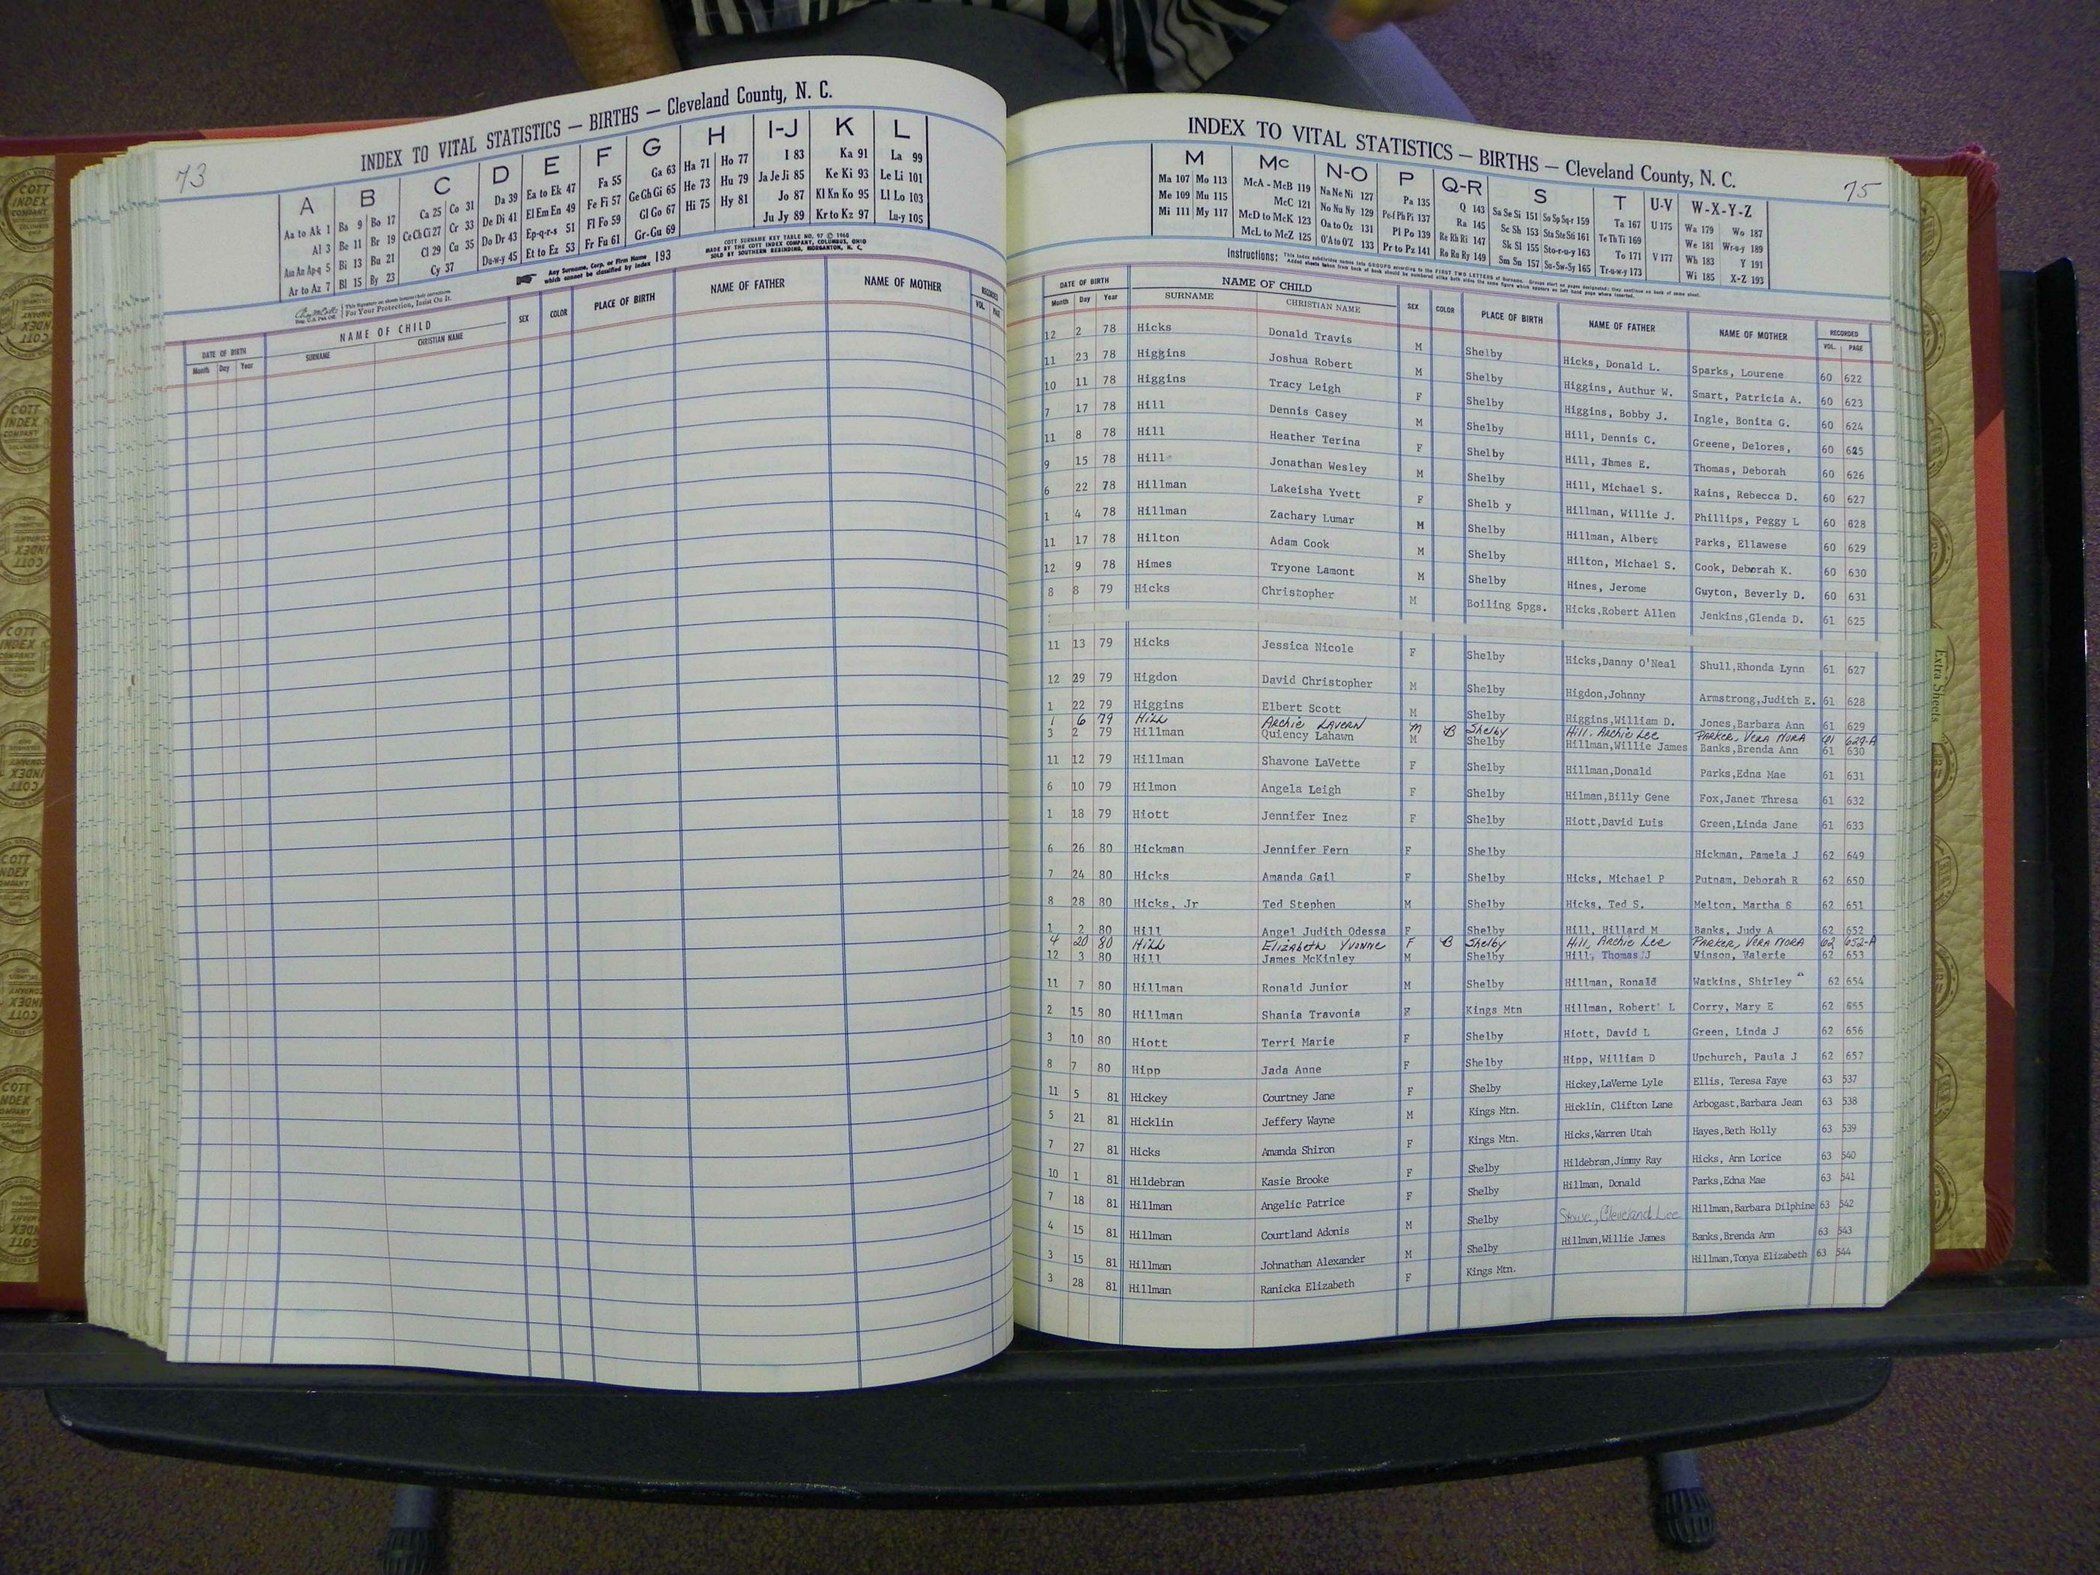 73
INDEX TO VITAL STATISTICS — BIRTHS — Cleveland County, N. C.
A B C D E F G H I-J K L
Aa to Ak 1 Ba 9 Bo 17 Ca 25 Co 31 Da 39 Ea to Ek 47 Fa 55 Ga 63 Ha 71 Ho 77 I 83 Ka 91 La 99
Al 3 Be 11 Br 19 Ce Ch Ci 27 Cr 33 De Di 41 El Em En 49 Fe Fi 57 Ge Gh Gi 65 He 73 Hu 79 Ja Je Ji 85 Ke Ki 93 Le Li 101
Am An Ap-q 5 Bi 13 Bu 21 Cl 29 Cu 35 Do Dr 43 Ep-q-r-s 51 Fl Fo 59 Gl Go 67 Hi 75 Hy 81 Jo 87 Kl Kn Ko 95 Ll Lo 103
Ar to Az 7 Bl 15 By 23 Cy 37 Du-w-y 45 Et to Ez 53 Fr Fu 61 Gr-Gu 69 Ju Jy 89 Kr to Kz 97 Lu-y 105
COTT SURNAME KEY TABLE NO. 97 © 1960
MADE BY THE COTT INDEX COMPANY, COLUMBUS, OHIO
SOLD BY SOUTHERN REBINDING, MORGANTON, N. C.
Any Surname, Corp. or Firm Name which cannot be classified by index 193
For Your Protection, Insist On It.
DATE OF BIRTH NAME OF CHILD SEX COLOR PLACE OF BIRTH NAME OF FATHER NAME OF MOTHER RECORDED
Month Day Year SURNAME CHRISTIAN NAME VOL. PAGE
75
INDEX TO VITAL STATISTICS — BIRTHS — Cleveland County, N. C.
M Mc N-O P Q-R S T U-V W-X-Y-Z
Ma 107 Mo 113 McA - McB 119 Na Ne Ni 127 Pa 135 Q 143 Sa Se Si 151 So Sp Sq-r 159 Ta 167 U 175 Wa 179 Wo 187
Me 109 Mu 115 McC 121 No Nu Ny 129 Pe-f Ph Pi 137 Ra 145 Sc Sh 153 Sta Ste Sti 161 Te Th Ti 169 We 181 Wr-u-y 189
Mi 111 My 117 McD to McK 123 Oa to Oz 131 Pl Po 139 Re Rh Ri 147 Sk Sl 155 Sto-r-u-y 163 To 171 V 177 Wh 183 Y 191
McL to McZ 125 O'A to O'Z 133 Pr to Pz 141 Ro Ru Ry 149 Sm Sn 157 Su-Sw-Sy 165 Tr-u-w-y 173 Wi 185 X-Z 193
Instructions: This index subdivides names into GROUPS according to the FIRST TWO LETTERS of Surname. Groups start on pages designated; they continue on back of same sheet.
Added sheets taken from back of book should be numbered alike both sides the same figure which appears on left hand page where inserted.
DATE OF BIRTH NAME OF CHILD SEX COLOR PLACE OF BIRTH NAME OF FATHER NAME OF MOTHER RECORDED
Month Day Year SURNAME CHRISTIAN NAME VOL. PAGE
12 2 78 Hicks Donald Travis M Shelby Hicks, Donald L. Sparks, Lourene 60 622
11 23 78 Higgins Joshua Robert M Shelby Higgins, Authur W. Smart, Patricia A. 60 623
10 11 78 Higgins Tracy Leigh F Shelby Higgins, Bobby J. Ingle, Bonita G. 60 624
7 17 78 Hill Dennis Casey M Shelby Hill, Dennis C. Greene, Delores, 60 625
11 8 78 Hill Heather Terina F Shelby Hill, James E. Thomas, Deborah 60 626
9 15 78 Hill Jonathan Wesley M Shelby Hill, Michael S. Rains, Rebecca D. 60 627
6 22 78 Hillman Lakeisha Yvett F Shelb y Hillman, Willie J. Phillips, Peggy L 60 628
1 4 78 Hillman Zachary Lumar M Shelby Hillman, Albert Parks, Ellawese 60 629
11 17 78 Hilton Adam Cook M Shelby Hilton, Michael S. Cook, Deborah K. 60 630
12 9 78 Himes Tryone Lamont M Shelby Hines, Jerome Guyton, Beverly D. 60 631
8 8 79 Hicks Christopher M Boiling Spgs. Hicks,Robert Allen Jenkins,Glenda D. 61 625
11 13 79 Hicks Jessica Nicole F Shelby Hicks,Danny O'Neal Shull,Rhonda Lynn 61 627
12 29 79 Higdon David Christopher M Shelby Higdon,Johnny Armstrong,Judith E. 61 628
1 22 79 Higgins Elbert Scott M Shelby Higgins,William D. Jones,Barbara Ann 61 629
1 6 79 Hill Archie Lavern M B Shelby Hill, Archie Lee Parker, Vera Nora 61 629-A
3 2 79 Hillman Quiency Lahawn M Shelby Hillman,Willie James Banks,Brenda Ann 61 630
11 12 79 Hillman Shavone LaVette F Shelby Hillman,Donald Parks,Edna Mae 61 631
6 10 79 Hilmon Angela Leigh F Shelby Hilman,Billy Gene Fox,Janet Thresa 61 632
1 18 79 Hiott Jennifer Inez F Shelby Hiott,David Luis Green,Linda Jane 61 633
6 26 80 Hickman Jennifer Fern F Shelby Hickman, Pamela J 62 649
7 24 80 Hicks Amanda Gail F Shelby Hicks, Michael P Putnam, Deborah R 62 650
8 28 80 Hicks, Jr Ted Stephen M Shelby Hicks, Ted S. Melton, Martha S 62 651
1 2 80 Hill Angel Judith Odessa F Shelby Hill, Hillard M Banks, Judy A 62 652
4 20 80 Hill Elizabeth Yvonne F B Shelby Hill, Archie Lee Parker, Vera Nora 62 652-A
12 3 80 Hill James McKinley M Shelby Hill, Thomas J Vinson, Valerie 62 653
11 7 80 Hillman Ronald Junior M Shelby Hillman, Ronald Watkins, Shirley 62 654
2 15 80 Hillman Shania Travonia F Kings Mtn Hillman, Robert L Corry, Mary E 62 655
3 10 80 Hiott Terri Marie F Shelby Hiott, David L Green, Linda J 62 656
8 7 80 Hipp Jada Anne F Shelby Hipp, William D Upchurch, Paula J 62 657
11 5 81 Hickey Courtney Jane F Shelby Hickey,LaVerne Lyle Ellis, Teresa Faye 63 537
5 21 81 Hicklin Jeffery Wayne M Kings Mtn. Hicklin, Clifton Lane Arbogast,Barbara Jean 63 538
7 27 81 Hicks Amanda Shiron F Kings Mtn. Hicks,Warren Utah Hayes,Beth Holly 63 539
10 1 81 Hildebran Kasie Brooke F Shelby Hildebran,Jimmy Ray Hicks, Ann Lorice 63 540
7 18 81 Hillman Angelic Patrice F Shelby Hillman, Donald Parks,Edna Mae 63 541
4 15 81 Hillman Courtland Adonis M Shelby Stowe, Cleveland Lee Hillman,Barbara Dilphine 63 542
3 15 81 Hillman Johnathan Alexander M Shelby Hillman,Willie James Banks,Brenda Ann 63 543
3 28 81 Hillman Ranicka Elizabeth F Kings Mtn. Hillman,Tonya Elizabeth 63 544
Extra Sheets
COTT INDEX COMPANY